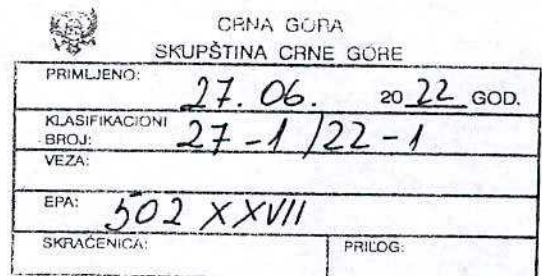 CRNA GORA
SKUPŠTINA CRNE GORE
PRIMLJENO: 27. 06. 20 22 GOD.
KLASIFIKACIONI BROJ: 27-1/22-1
VEZA:
EPA: 502 XXVII
SKRAĆENICA: PRILOG: